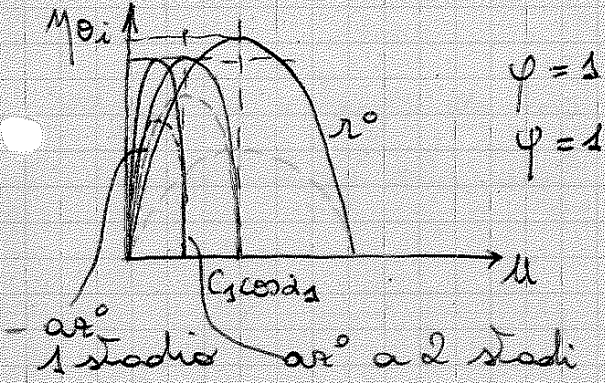 ηθi
φ = 1
r°
ψ = 1
u
C1cosα1
az°
1 stadio
az° a 2 stadi